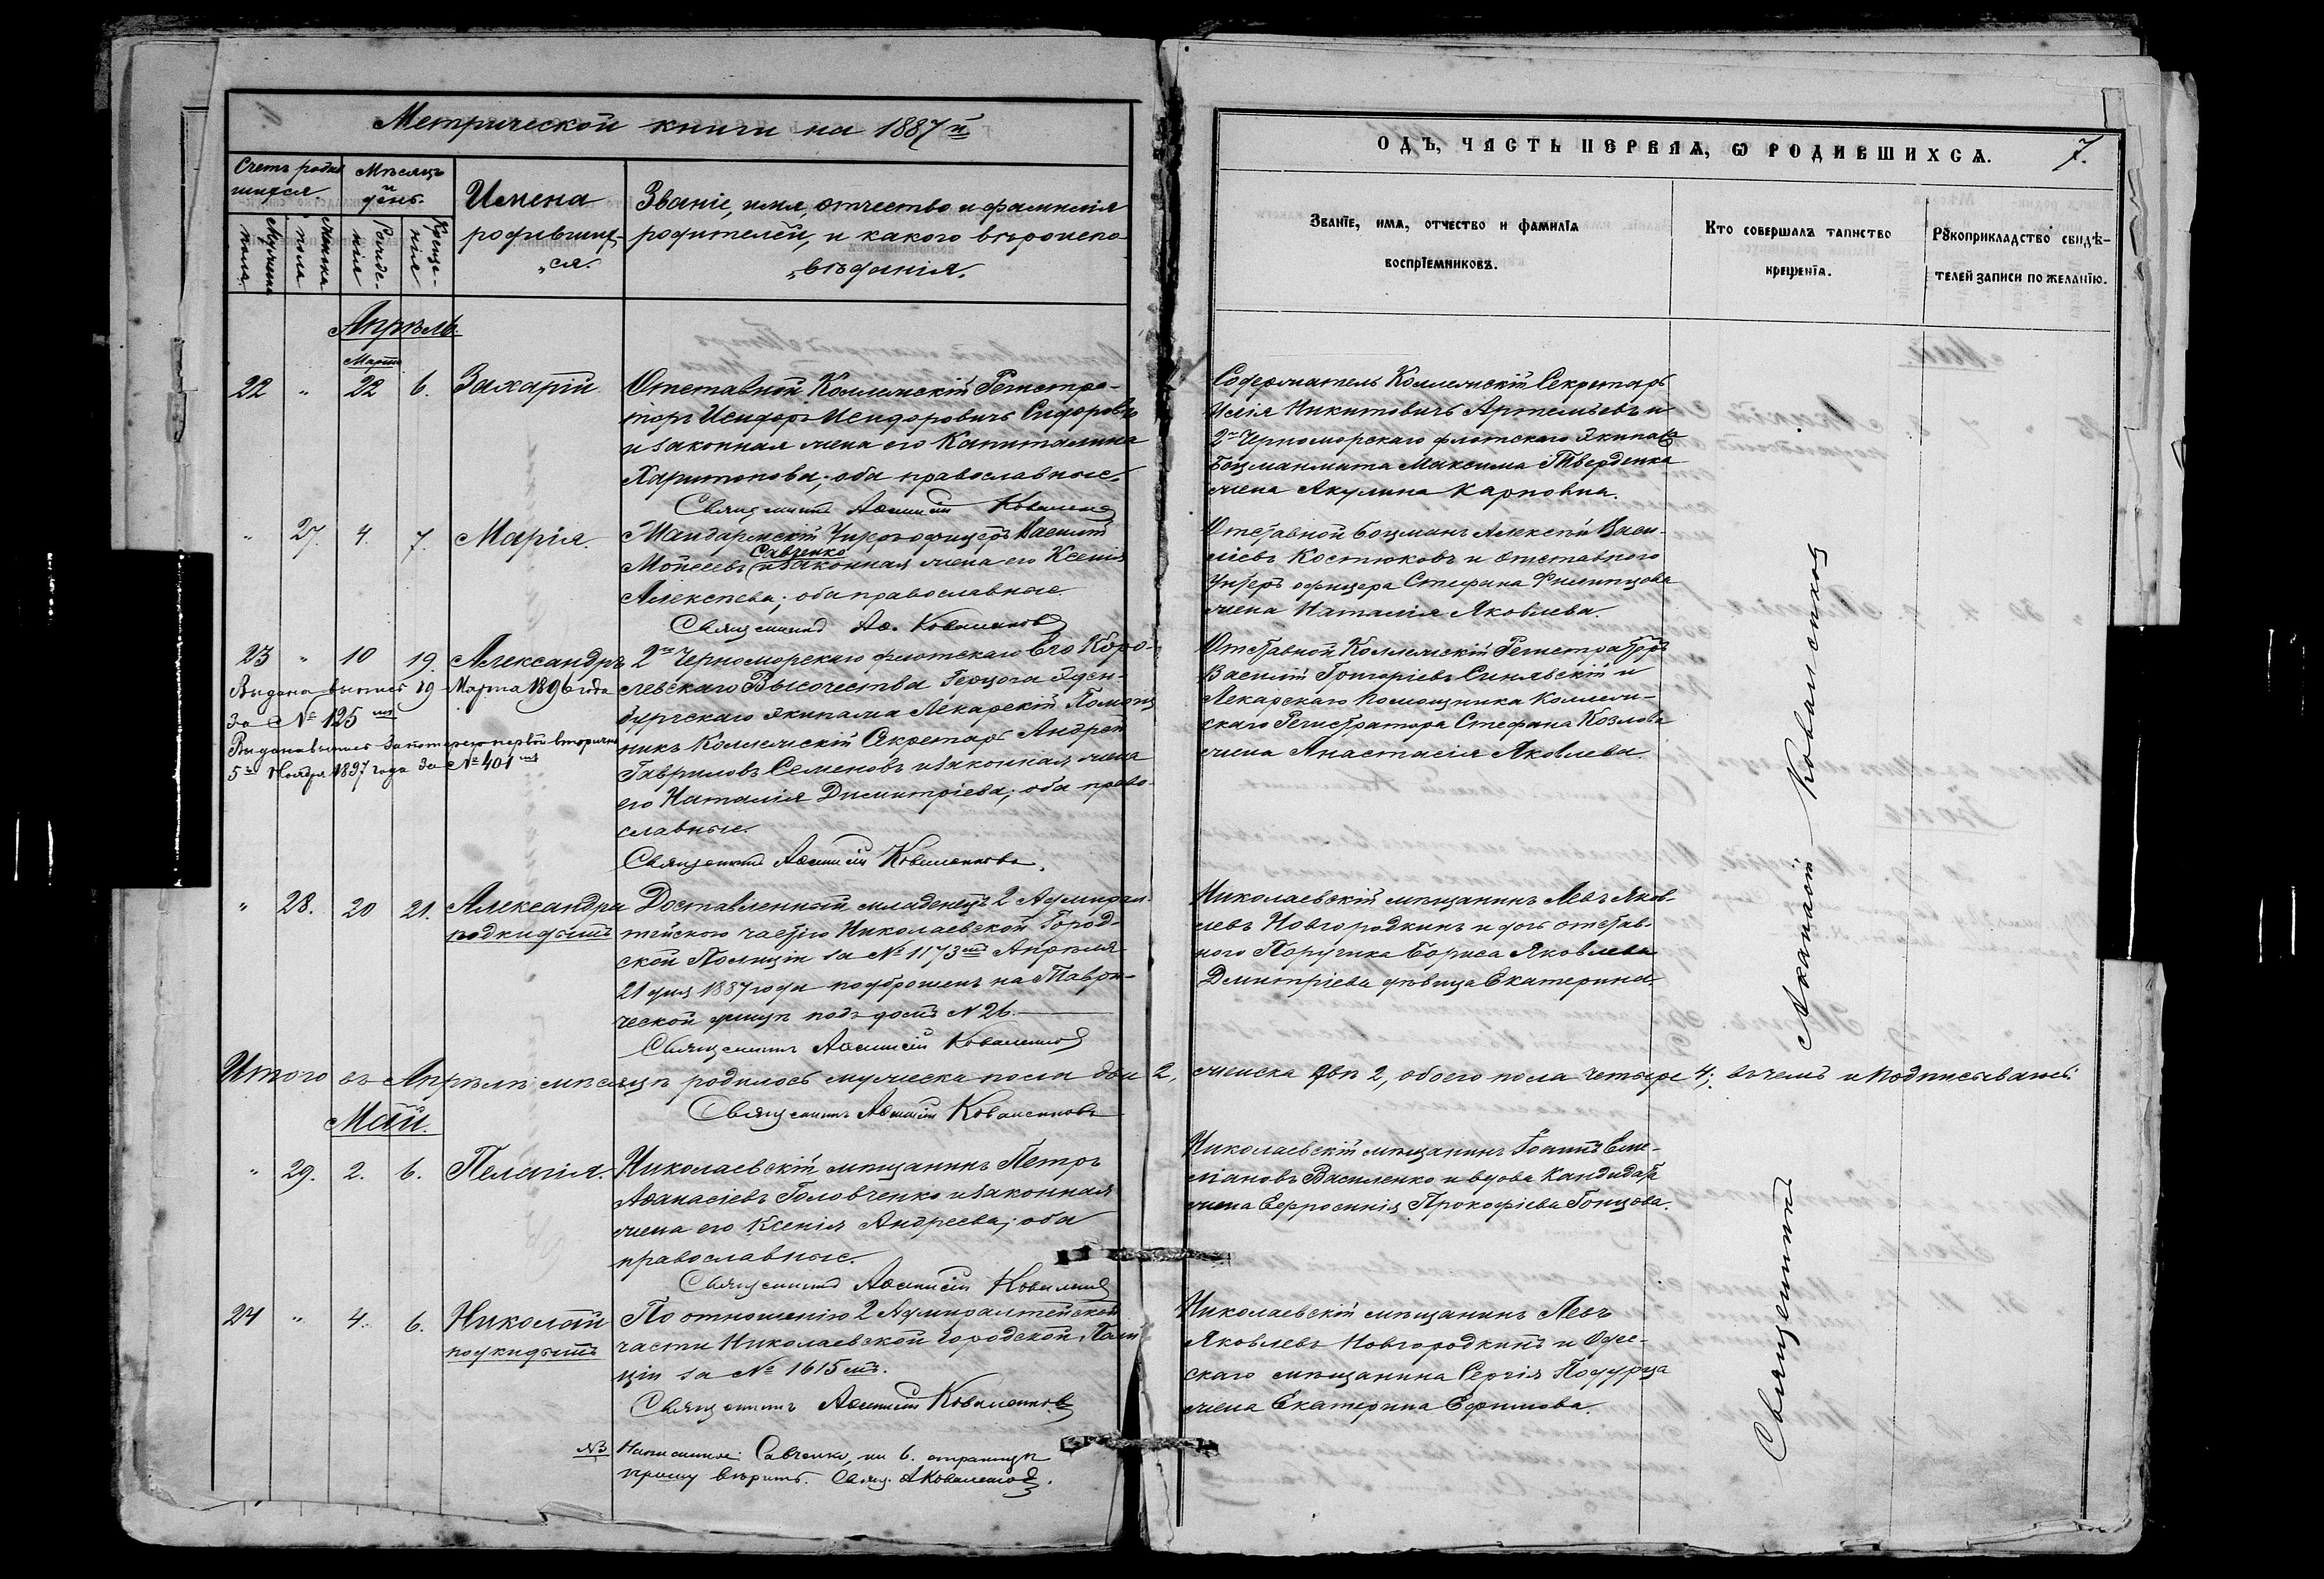 Метрической книги на 1887й
Счетъ родив
шихся
Мѣсяцъ
и
день.
Имена
родивших-
ся.
Званіе, имя, отчество и фамилія
родителей, и какого вѣроиспо-
вѣданія.
Мужеска
пола.
Женска
пола
Рожде-
нія
Креще-
нія
Апрѣль.
Марта
22 " 22 6. Захарій
Отставной Коллежскій Регистра-
торъ Исидоръ Исидоровичъ Сидоровъ
и законная жена его Капиталина
Харитонова; оба православные.
Священникъ Аѳанасій
" 27. 4. 7. Марія.
Жандармскій Унтеръ-офицеръ Василій
Савченко
Мойсеевъ и законная жена его Ксенія
Алексѣева; оба православные
Священникъ Аѳ.
23 " 10 19. Александръ
2го Черноморскаго флотскаго Его Коро-
левскаго Высочества Герцога Эден-
бургскаго экипажа Лекарскій Помощ
никъ Коллежскій Секретарь Андрей
Гавриловъ Семеновъ и законная жена
его Наталія Димитріева; оба право-
славные.
Священникъ Аѳанасій Коваленковъ.
Выдана выпись 19 Марта 1896 года
за № 125мъ
Выдана выпись за потерею первой вторично
5го Ноября 1897 года за № 401мъ
" 28. 20 21. Александра
подкидышъ
Доставленный младенецъ 2 Адмирал-
тейскою частію Николаевской Город-
ской Полиціи за № 1173мъ Апрѣля
21 дня 1887 года подброшенъ на Таври-
ческой улицѣ подъ домъ № 26.
Священникъ Аѳанасій
Итого въ Апрѣлѣ мѣсяцѣ родилось мужеска пола два 2,
Священникъ Аѳанасій Коваленковъ
Май.
" 29. 2. 6. Пелагія.
Николаевскій мѣщанинъ Петръ
Аѳанасіевъ Головченко и законная
жена его Ксенія Андреева; оба
православные.
Священникъ Аѳанасій
24 " 4. 6. Николай
подкидышъ
По отношенію 2 Адмиралтейской
части Николаевской городской Поли
ціи за № 1615мъ.
Священникъ Аѳанасій Коваленковъ
№ Написанное: Савченко, на 6. страницѣ
прошу вѣрить. Свящ. А
ОДЪ, ЧАСТЬ ПЕРВАѦ, Ѡ РОДИВШИХСѦ. 7.
Званїе, имѧ, отчество и фамилїѧ
воспрїемниковъ.
Кто совершалъ таинство
крещенїѧ.
Рꙋкоприкладство свидѣ-
телей записи по желанїю.
Содержатель Коллежскій Секретарь
Илія Никитовичъ Артемьевъ и
2го Черноморскаго флотскаго Экипажа
Боцманмата Максима Тверденка
жена Акулина Карповна.
Отставной боцманъ Алексѣй Васи-
ліевъ Костюковъ и отставного
унтеръ офицера Стефана Филипцова
жена Наталія Яковлева.
Отставной Коллежскій Регистраторъ
Василій Григоріевъ Синявскій и
Лекарскаго помощника Коллеж-
скаго Регистратора Стефана Козлова
жена Анастасія Яковлева.
Николаевскій мѣщанинъ Левъ Яков-
левъ Новгородкинъ и дочь отстав-
ного Поручика Бориса Яковлева
Дмитріева дѣвица Екатерина
женска двѣ 2, обоего пола четыре 4; въ чемъ и подписываюсь.
Николаевскій мѣщанинъ Іоаннъ Еме-
ліановъ Василенко и вдова Кандидата
жена Ефросинія Прокофіева Гонцова.
Николаевскій мѣщанинъ Левъ
Яковлевъ Новгородкинъ и Одес-
скаго мѣщанина Сергія
жена Екатерина Ефимова.
Священникъ Аѳанасій Коваленковъ